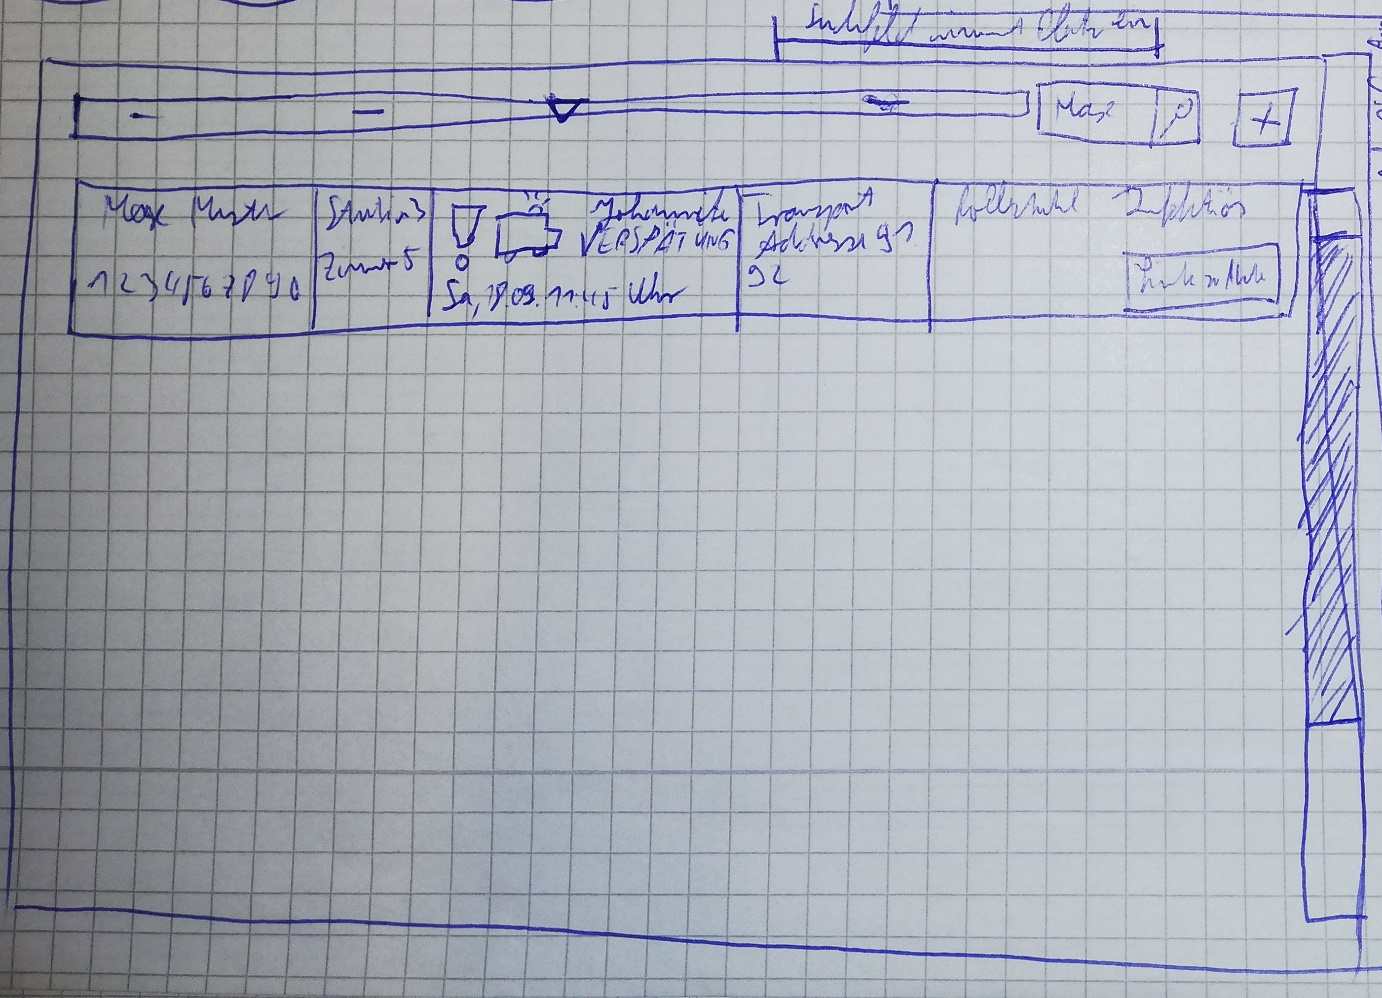 Suchfeld nimmt Platz ein
Max
Max Muster
1234567890
Station 3
Zimmer 5
Johanniter
VERSPÄTUNG
Sa, 19.09. 11:45 Uhr
Transport
Addresse g1
g2
Rollstuhl
Infektiös
Link zu Akte